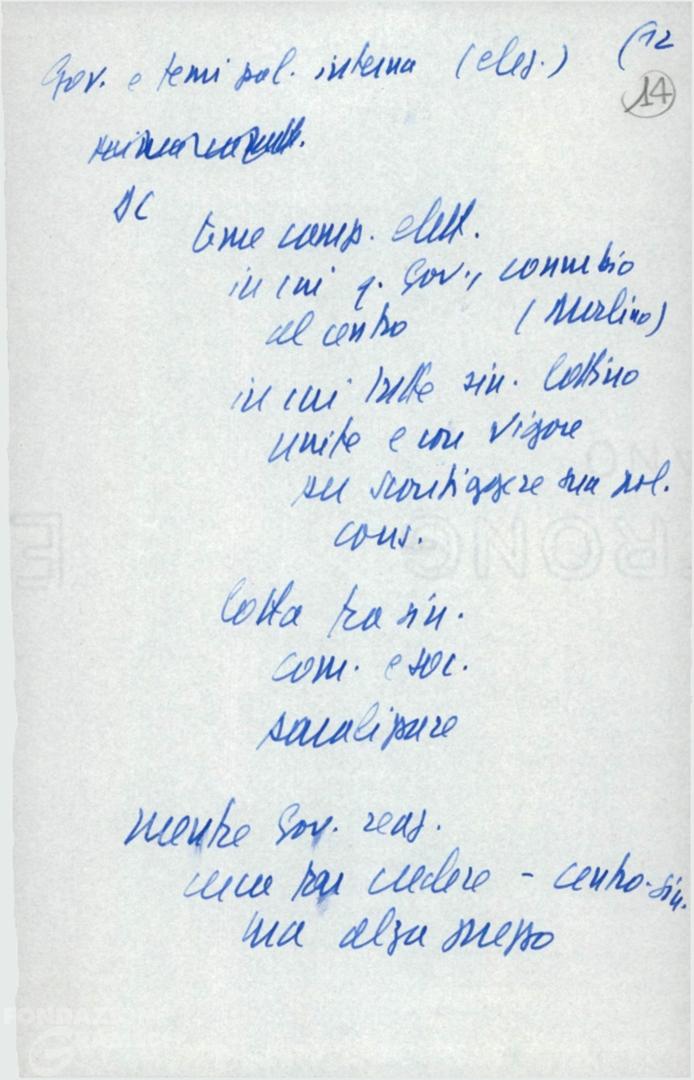 Gov. e temi pol. interna (eleg.) (12
14
DC
teme comp. elett.
in cui q. Gov., connubio
al centro (Merlino)
in cui tutte sin. lottino
unite e con vigore
su sconfiggere sua pol.
cons.
Lotta tra sin.
com. e soc.
mentre Gov. reag.
cerca far credere - centro-sin.
ma alza prezzo
FONDAZIONE